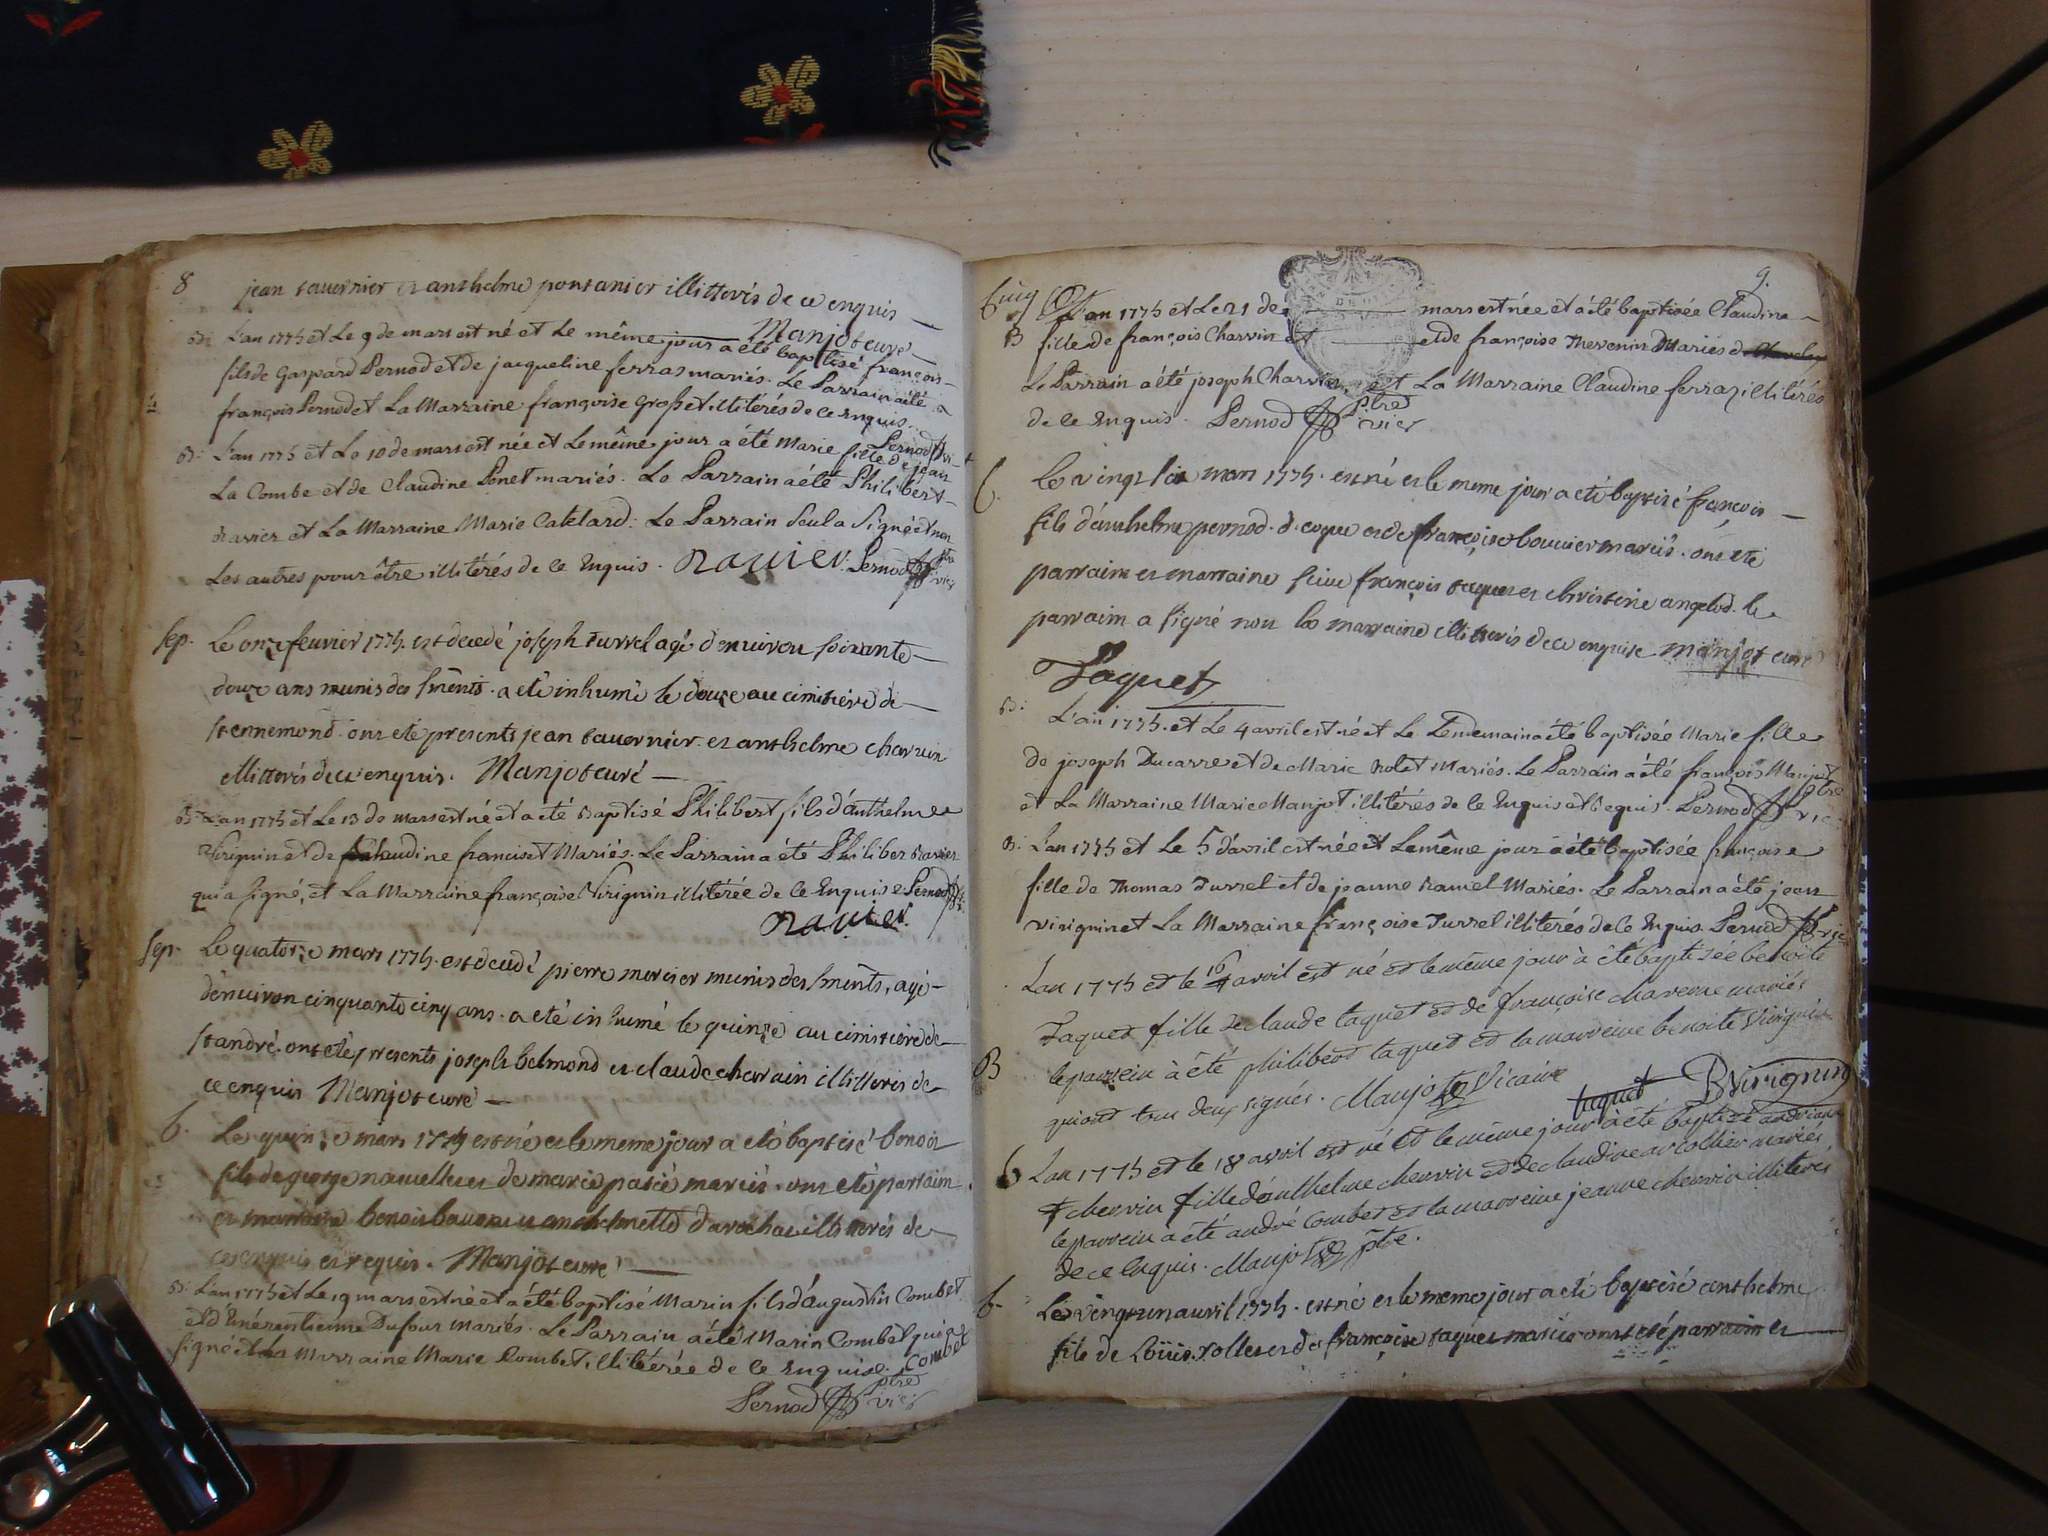 8
jean tavernier et anthelme pontanier illitterés de ce enquis
Manjot curé
B: L'an 1775 et Le 9 de mars est né et Le même jour a été baptisé françois
fils de Gaspard Pernod et de jacqueline ferras mariés. Le Parrain a été
françois Pernod et La Marraine françoise Gros et illitérés de ce Enquis.
Pernod
B: L'an 1775 et Le 10 de mars est née et Le même jour a été Marie fille de jean
La Combe et de Claudine Ponet mariés. Le Parrain a été Philibert
Ravier et La Marraine Marie Catelard: Le Parrain Seul a Signé et non
Les autres pour être illitérés de ce Enquis. Ravier. Pernod ptre vic
sep. Le onze feuvrier 1775. est decedé joseph Turrel agé d'enuiron soixante
douze ans munis des smènts. a eté inhumé le douze au cimitière de
st ennemond. ont eté presents jean tavernier et anthelme charvin
illitterés de ce enquis. Manjot curé
B: L'an 1775 et Le 13 de mars est né et a eté Baptisé Philibert fils d'anthelme
Viriguin et de Claudine francis et Mariés. Le Parrain a été Philiber Ravier
qui a signé, et La Marraine françoise Viriguin illitérée de Ce Enquise Pernod
Ravier
sep. Le quatorze mars 1775. est decedé pierre mercier munis des sments, agé
d'enuiron cinquante cinq ans. a eté inhumé le quinze au cimitière de
st andré. ont eté presents joseph belmond et claude charvin illitterés de
ce enquis Manjot curé
b. Le quinze mars 1775 est né et le meme jour a eté baptisé benoit
fils de george nanuelle et de marie pasié mariés. ont eté parraim
et marraine benoit et anthelmette illitterés de
ce enquis et requis. Manjot curé
B: L'an 1775 et Le 19 mars est né et a été baptisé Marin fils d'augustin Combet
et d'Enérentienne Dufour mariés. Le Parrain a été Marin Combet qui a
signé et La Marraine Marie Combet, illitérée de ce Enquise. Combet
Pernod ptre vic
9.
B L'an 1775 et Le 21 de mars est née et a été baptisée Claudine
fille de françois Charvin et et de françoise Thevenin Mariés
Le Parrain a été joseph Charvin, et La Marraine Claudine ferraz illitérés
de ce Enquis. Pernod ptre vic
b. Le vingt six mars 1775. est né et le meme jour a eté baptisé françois
fils d'anthelme pernod. d. coque et de françoise bouvier mariés. ont eté
parraim et marraine françois taquet et christine angelod. le
parraim a signé non la marraine illitterés de ce enquise manjot curé
Taquet
B: L'an 1775. et Le 4 avril est né et Le Lendemain a été baptisée Marie fille
de joseph Ducarre et de Marie Rolet Mariés. Le Parrain a été françois Manjot
et La Marraine Marie Manjot illitérés de ce Enquis et Requis. Pernod ptre vic
B: L'an 1775 et Le 5 d'avril est née et Le même jour a été baptisée françoise
fille de Thomas Turrel et de jeanne Ramel Mariés. Le Parrain a été jean
viriguin et La Marraine françoise Turrel illiterés de ce Enquis. Pernod ptre vic
Lan 1775 et le 16 avril est né et le même jour à êté baptisée benoite
Taquet fille de claude taquet et de françoise mariés
B le parrein à êté philibert taquet et la marreine benoite Viriguin
qui ont tous deux signés. Manjot Vicaire taquet B Viriguin
b Lan 1775 et le 18 avril est né et le même jour à été baptisé
charvin fille d'anthelme charvin et de claudine mariés
le parrein a été andré Combet et la marreine jeanne charvin illiterés
de ce enquis. Manjot ptre.
b. Le vingt un avril 1775. est né et le meme jour a eté baptisé anthelme
fils de Loüis Rollet et de françoise taquet mariés ont eté parraim et